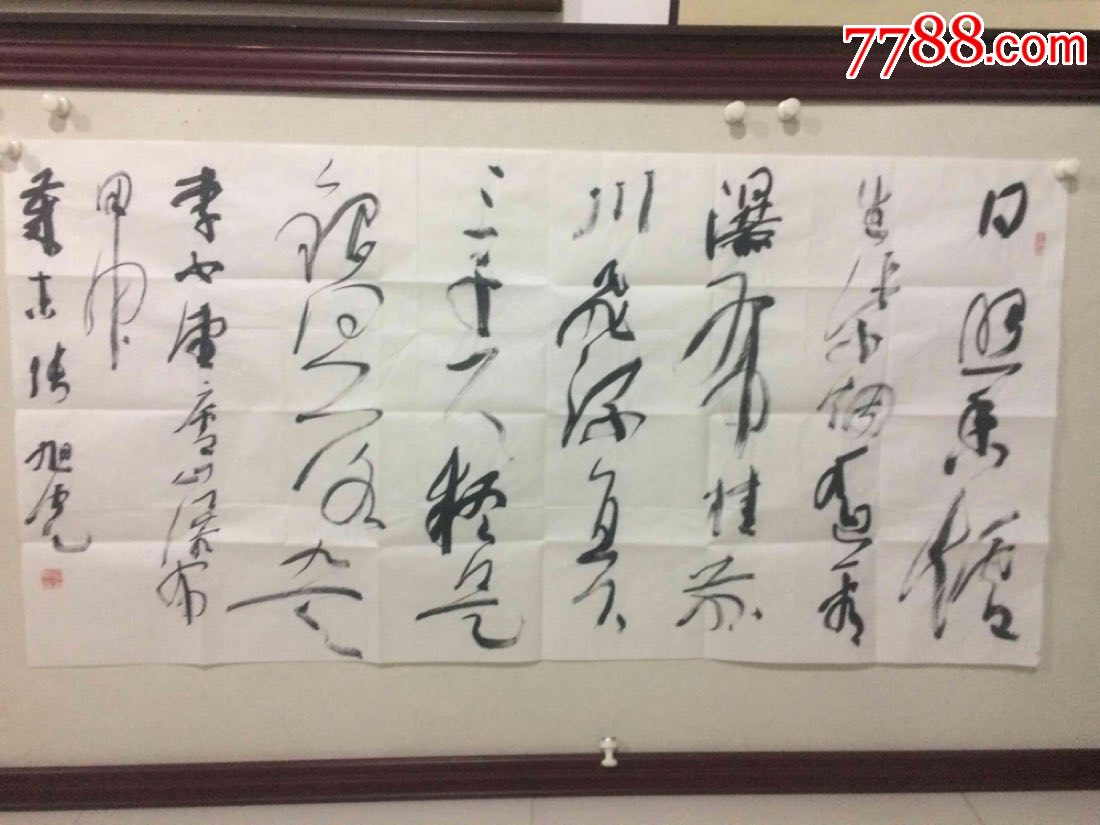 7788.com
日照香爐
生紫烟遥看
瀑布挂前
川飛流直下
三千尺疑是
銀河落九天
李白望廬山瀑布
甲申
張旭光